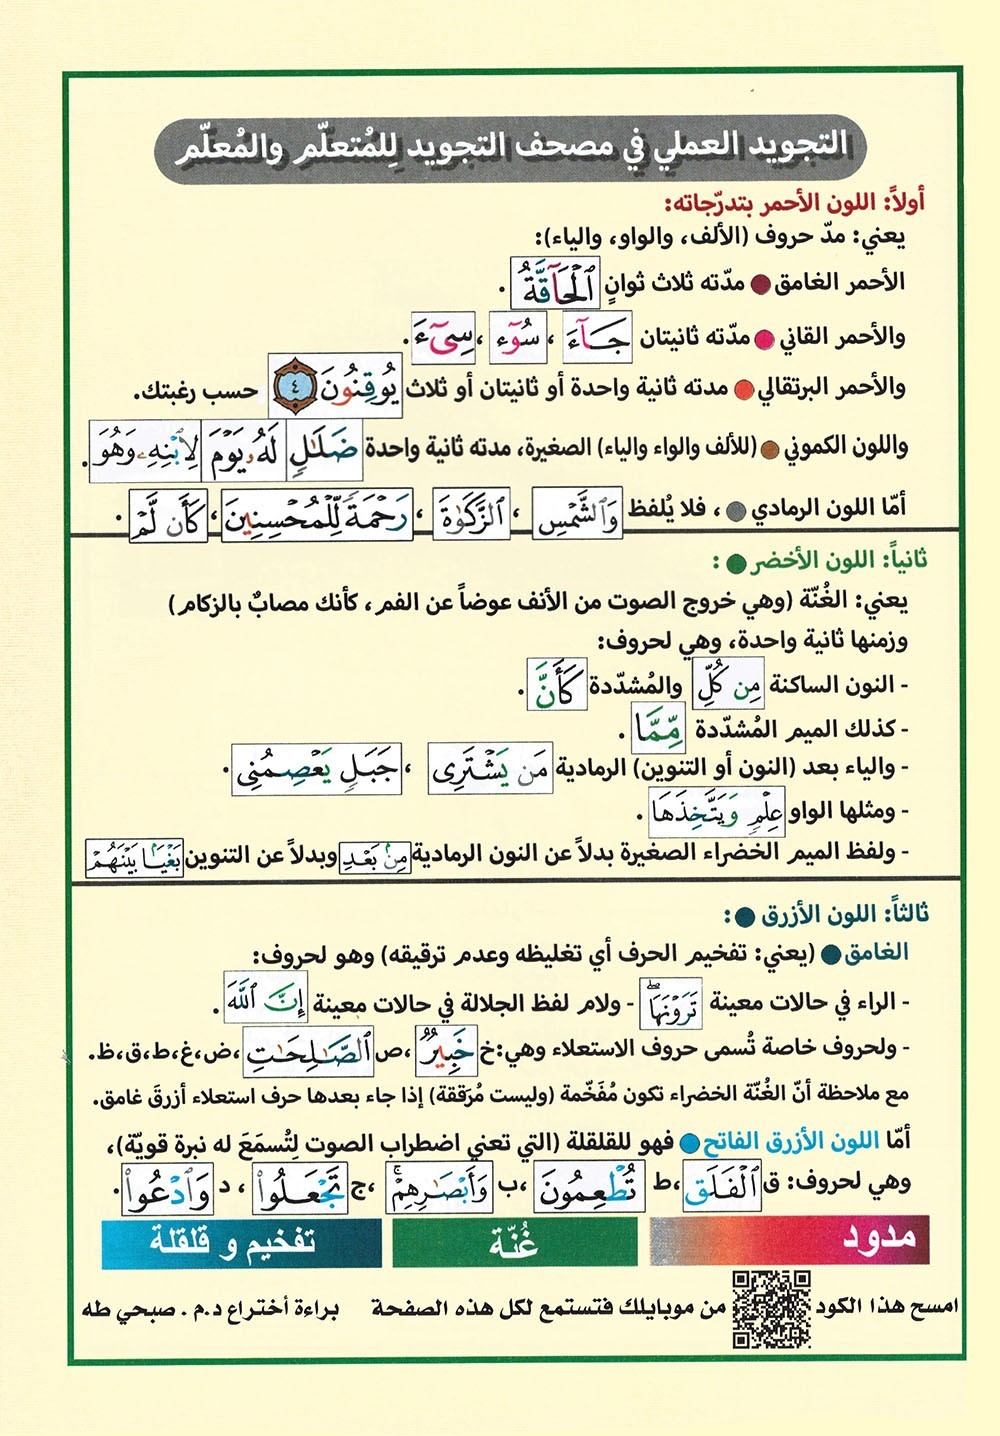 التجويد العملي في مصحف التجويد لِلمُتعلّم والمُعلّم
أولاً: اللون الأحمر بتدرّجاته:
يعني: مدّ حروف (الألف، والواو، والياء):
الأحمر الغامق مدّته ثلاث ثوانٍ ٱلْحَآقَّةُ .
والأحمر القاني مدّته ثانيتان جَآءَ ، سُوٓء ، سِيٓءَ .
والأحمر البرتقالي مدته ثانية واحدة أو ثانيتان أو ثلاث يُوقِنُونَ ٤ حسب رغبتك.
واللون الكموني (للألف والواء والياء) الصغيرة، مدته ثانية واحدة ضَلَٰلٍ لَهُۥ يَوْمَ لِٱبْنِهِۦ وَهُوَ .
أمّا اللون الرمادي ، فلا يُلفظ وَٱلشَّمْسِ ، ٱلزَّكَوٰةَ ، رَحْمَةً لِّلْمُحْسِنِينَ ، كَأَن لَّمْ .
ثانياً: اللون الأخضر :
يعني: الغُنّة (وهي خروج الصوت من الأنف عوضاً عن الفم، كأنك مصابٌ بالزكام)
وزمنها ثانية واحدة، وهي لحروف:
- النون الساكنة مِن كُلِّ والمُشدّدة كَأَنَّ .
- كذلك الميم المُشدّدة مِّمَّا .
- والياء بعد (النون أو التنوين) الرمادية مَن يَشْتَرِى ، جَبَلٍ يَعْصِمُنِى .
- ومثلها الواو عِلْمٍ وَيَتَّخِذَهَا .
- ولفظ الميم الخضراء الصغيرة بدلاً عن النون الرمادية مِنۢ بَعْدِ وبدلاً عن التنوين بَغْيًۢا بَيْنَهُمْ
ثالثاً: اللون الأزرق :
الغامق (يعني: تفخيم الحرف أي تغليظه وعدم ترقيقه) وهو لحروف:
- الراء في حالات معينة تَرَوْنَهَا ۖ - ولام لفظ الجلالة في حالات معينة إِنَّ ٱللَّهَ .
- ولحروف خاصة تُسمى حروف الاستعلاء وهي: خ خَبِيرٌ ، ص ٱلصَّٰلِحَٰتِ ، ض، غ، ط، ق، ظ.
مع ملاحظة أنّ الغُنّة الخضراء تكون مُفَخّمة (وليست مُرَققة) إذا جاء بعدها حرف استعلاء أزرقَ غامق.
أمّا اللون الأزرق الفاتح فهو للقلقلة (التي تعني اضطراب الصوت لِتُسمَعَ له نبرة قويّة)،
وهي لحروف: ق ٱلْفَلَقِ ، ط تُطْعِمُونَ ، ب وَأَبْصَٰرِهِمْ ۚ ، ج تَجْعَلُوا۟ ، د وَٱدْعُوا۟ .
مدود غُنّة تفخيم و قلقلة
امسح هذا الكود من موبايلك فتستمع لكل هذه الصفحة براءة أختراع د.م . صبحي طه